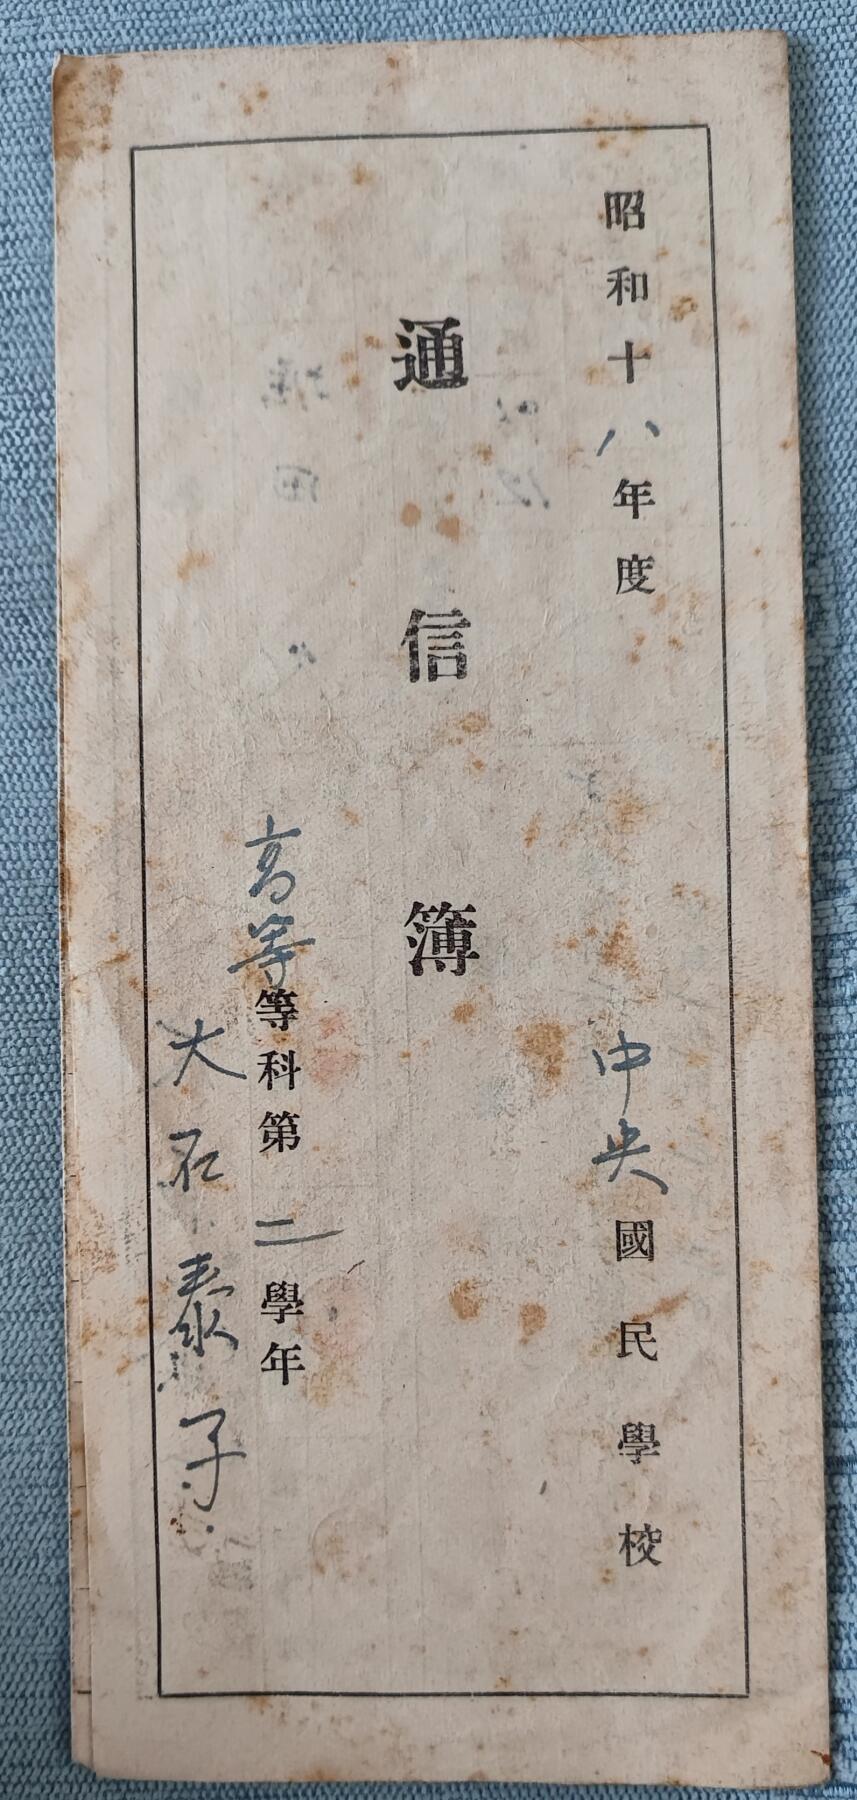 昭和十八年度
中央國民學校
通信簿
高等等科第二學年
大石泰子